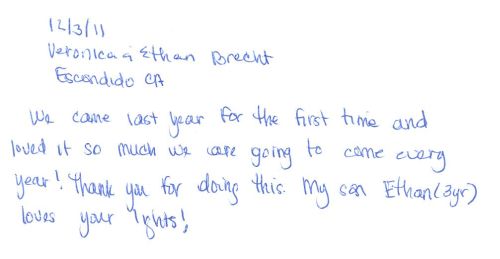 12/3/11
Veronica & Ethan Brecht
Escondido CA
We came last year for the first time and
loved it so much we are going to come every
year! Thank you for doing this. My son Ethan (3yr)
loves your lights!